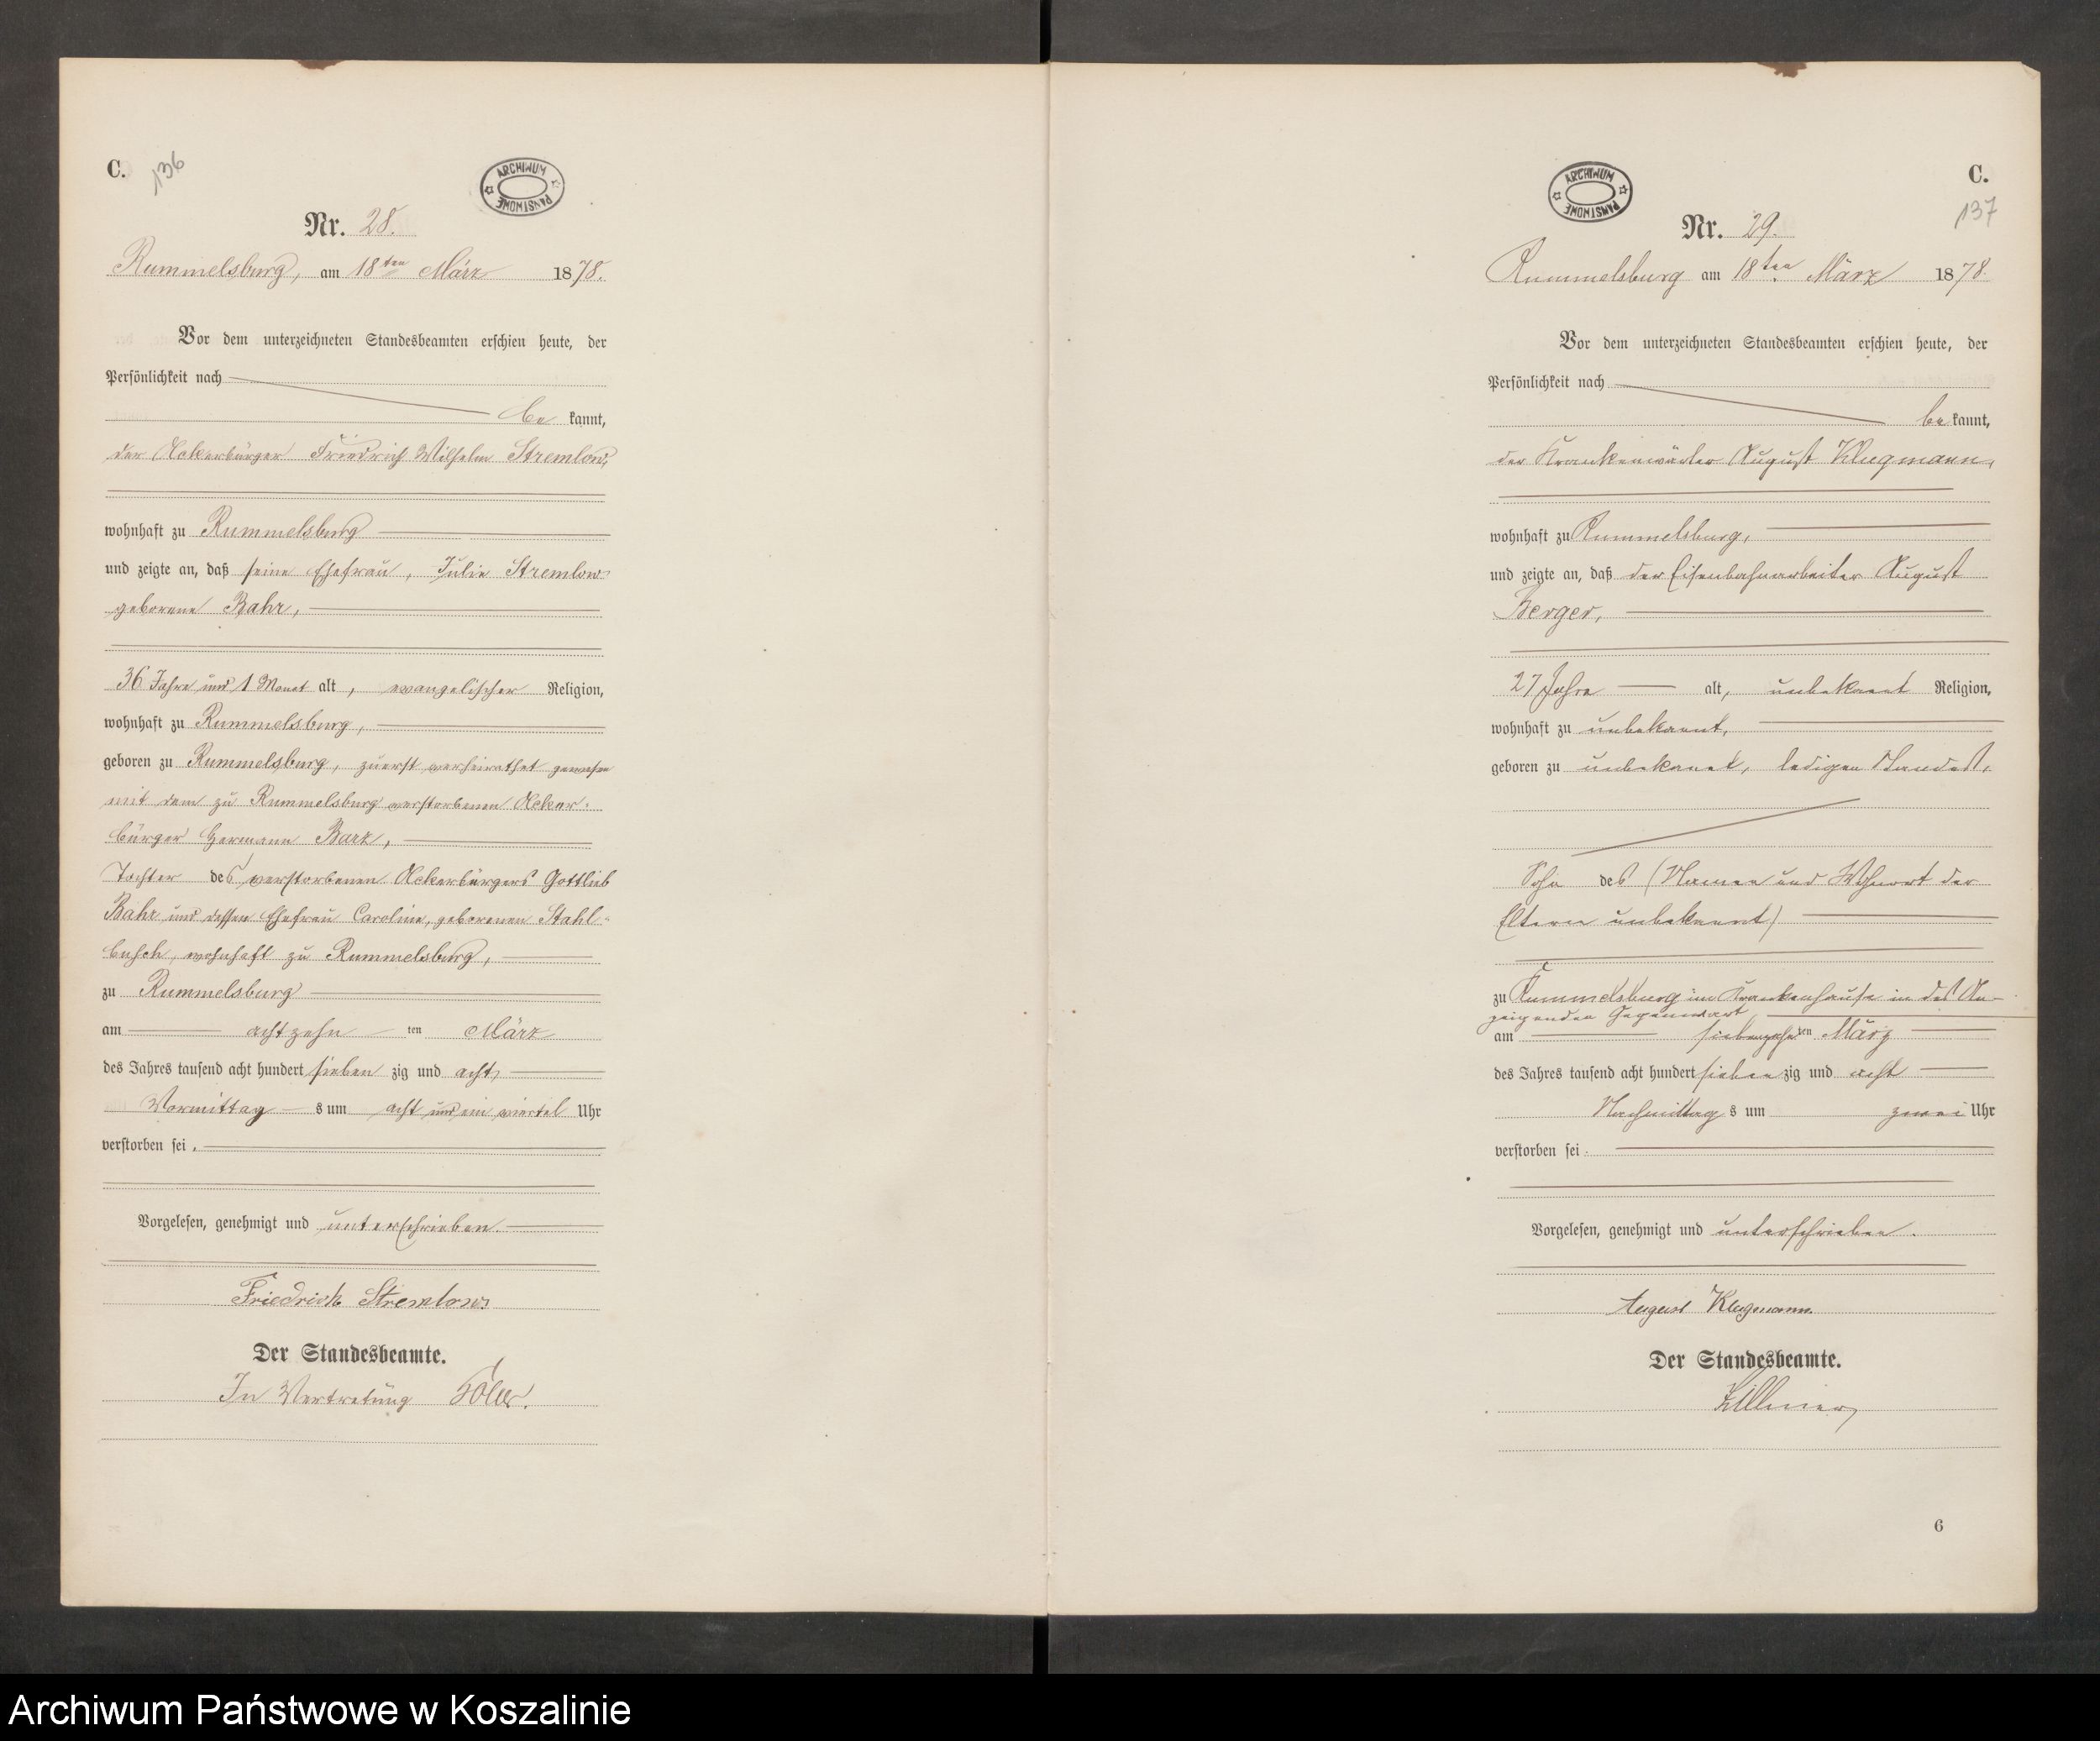 C.
136
ARCHIWUM PAŃSTWOWE
Nr. 28.
Rummelsburg, am 18ten März 1878.
Vor dem unterzeichneten Standesbeamten erschien heute, der
Persönlichkeit nach
be kannt,
der Ackerbürger Friedrich Wilhelm Stremlow,
wohnhaft zu Rummelsburg
und zeigte an, daß seine Ehefrau, Julie Stremlow
geborene Bahr,
36 Jahre und 1 Monat alt, evangelischer Religion,
wohnhaft zu Rummelsburg,
geboren zu Rummelsburg, zuerst verheirathet gewesen
mit dem zu Rummelsburg verstorbenen Acker-
bürger Hermann Barz,
Tochter des verstorbenen Ackerbürgers Gottlieb
Bahr und dessen Ehefrau Caroline, geborenen Stahl-
busch, wohnhaft zu Rummelsburg,
zu Rummelsburg
am achtzehn ten März
des Jahres tausend acht hundert sieben zig und acht,
Vormittag s um acht und ein viertel Uhr
verstorben sei.
Vorgelesen, genehmigt und unterschrieben.
Friedrich Stremlow
Der Standesbeamte.
In Vertretung
C.
137
ARCHIWUM PAŃSTWOWE
Nr. 29.
Rummelsburg am 18ten März 1878.
Vor dem unterzeichneten Standesbeamten erschien heute, der
Persönlichkeit nach
be kannt,
der Krankenwärter August Klugmann,
wohnhaft zu Rummelsburg,
und zeigte an, daß der Eisenbahnarbeiter August
Berger,
27 Jahre alt, unbekannt Religion,
wohnhaft zu unbekannt,
geboren zu unbekannt, ledigen Standes,
Sohn des (Namen und Wohnort der
Eltern unbekannt)
zu Rummelsburg im Krankenhause in des An-
zeigenden Gegenwart
am siebenzehn ten März
des Jahres tausend acht hundert sieben zig und acht
Nachmittag s um zwei Uhr
verstorben sei.
Vorgelesen, genehmigt und unterschrieben.
August Klugmann.
Der Standesbeamte.
Zillmer
6
Archiwum Państwowe w Koszalinie